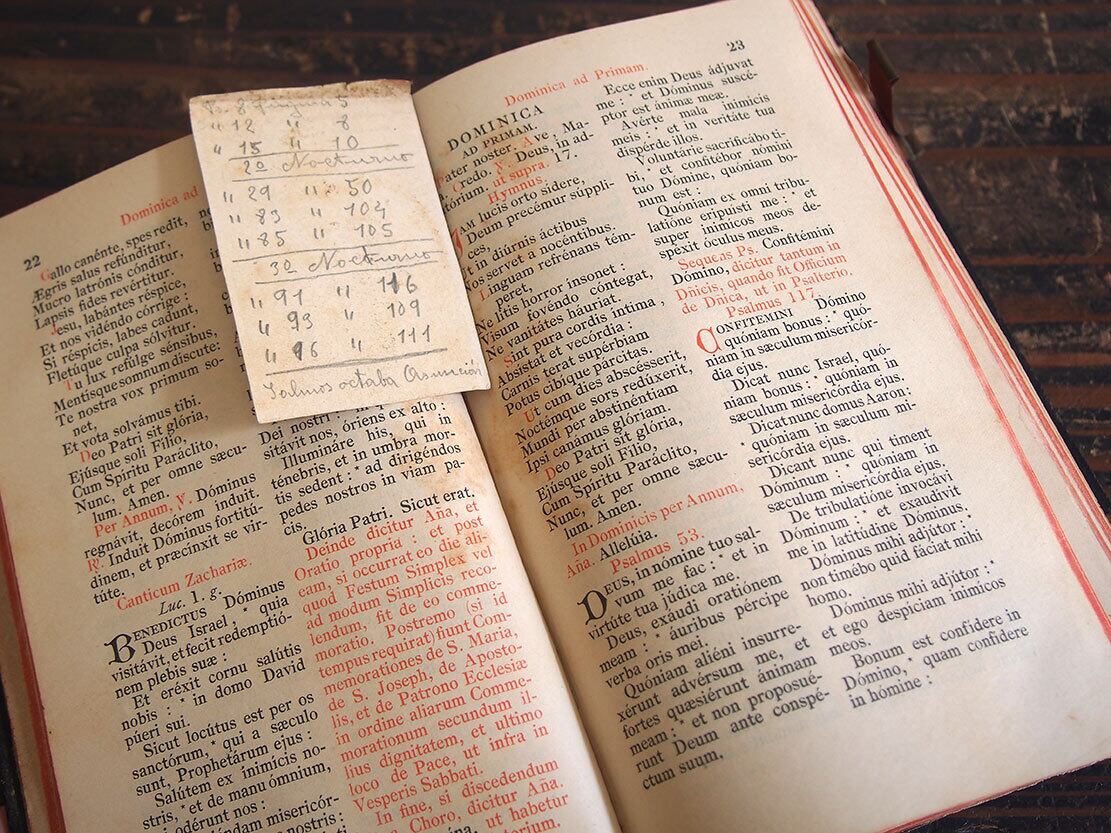 22
Dominica ad
Gallo canénte, spes redit,
Ægris salus refúnditur,
Mucro latrónis cónditur,
Lapsis fides revértitur.
Jesu, labántes réspice,
Et nos vidéndo córrige:
Si réspicis, labes cadunt,
Fletúque culpa sólvitur.
Tu lux refúlge sénsibus,
Mentísque somnum díscute:
Te nostra vox primum so-
net,
Et vota solvámus tibi.
Deo Patri sit glória,
Ejúsque soli Fílio,
Cum Spíritu Paráclito,
Nunc, et per omne sæcu-
lum. Amen.
Per Annum, ℣. Dóminus
regnávit, decórem índuit.
℟. Induit Dóminus fortitú-
dinem, et præcínxit se vir-
túte.
Canticum Zachariæ.
Luc. 1. g.
BENEDICTUS Dóminus
Deus Israel, * quia
visitávit, et fecit redemptió-
nem plebis suæ:
Et eréxit cornu salútis
nobis: * in domo David
púeri sui.
Sicut locútus est per os
sanctórum, * qui a sæculo
sunt, Prophetárum ejus:
Salútem ex inimícis no-
stris, * et de manu ómnium,
qui odérunt nos:
misericór-
nostris:
" 12 " 8
" 15 " 10
2º Nocturno
" 29 " 50
" 83 " 104
" 85 " 105
3º Nocturno
" 91 " 116
" 93 " 109
" 96 " 111
Salmos octaba Asunción
Dei nostri:
sitávit nos, óriens ex alto:
Illumináre his, qui in
ténebris, et in umbra mor-
tis sedent: * ad dirigéndos
pedes nostros in viam pa-
cis.
Glória Patri. Sicut erat.
Deinde dicitur Aña, et
Oratio propria: et post
eam, si occurrat eo die ali-
quod Festum Simplex vel
ad modum Simplicis reco-
lendum, fit de eo comme-
moratio. Postremo (si id
tempus requirat) fiunt Com-
memorationes de S. Maria,
de S. Joseph, de Aposto-
lis, et de Patrono Ecclesiæ
in ordine aliarum Comme-
morationum secundum il-
lius dignitatem, et ultimo
loco de Pace, ut infra in
Vesperis Sabbati.
In fine, si discedendum
Choro, dicitur Aña.
ut habetur
23
Dominica ad Primam.
DOMINICA
AD PRIMAM.
Pater noster. Ave, Ma-
Credo. ℣. Deus, in ad-
tórium. ut supra. 17.
Hymnus.
JAM lucis orto sídere,
Deum precémur súppli-
ces,
Ut in diúrnis áctibus
Nos servet a nocéntibus.
Linguam refrénans tém-
peret,
Ne litis horror ínsonet:
Visum fovéndo cóntegat,
Ne vanitátes háuriat.
Sint pura cordis íntima,
Absístat et vecórdia:
Carnis terat supérbiam
Potus cibíque párcitas.
Ut cum dies abscésserit,
Noctémque sors redúxerit,
Mundi per abstinéntiam
Ipsi canámus glóriam.
Deo Patri sit glória,
Ejúsque soli Fílio,
Cum Spíritu Paráclito,
Nunc, et per omne sæcu-
lum. Amen.
In Dominicis per Annum,
Aña. Allelúia.
Psalmus 53.
DEUS, in nómine tuo sal-
vum me fac: * et in
virtúte tua júdica me.
Deus, exáudi oratiónem
meam: * áuribus pércipe
verba oris mei.
Quóniam aliéni insurre-
xérunt advérsum me, et
fortes quæsiérunt ánimam
meam: * et non proposué-
runt Deum ante conspé-
ctum suum,
Ecce enim Deus ádjuvat
me: * et Dóminus suscé-
ptor est ánimæ meæ.
Avérte mala inimícis
meis: * et in veritáte tua
dispérde illos.
Voluntárie sacrificábo ti-
bi, * et confitébor nómini
tuo Dómine, quóniam bo-
num est:
Quóniam ex omni tribu-
latióne eripuísti me: * et
super inimícos meos de-
spéxit óculus meus.
Sequens Ps. Confitémini
Dómino, dicitur tantum in
Dñicis, quando fit Officium
de Dnica, ut in Psalterio.
Psalmus 117.
CONFITEMINI Dómino
quóniam bonus: * quó-
niam in sæculum misericór-
dia ejus.
Dicat nunc Israel, quó-
niam bonus: * quóniam in
sæculum misericórdia ejus.
Dicat nunc domus Aaron:
* quóniam in sæculum mi-
sericórdia ejus.
Dicant nunc qui timent
Dóminum: * quóniam in
sæculum misericórdia ejus.
De tribulatióne invocávi
Dóminum: * et exaudívit
me in latitúdine Dóminus.
Dóminus mihi adjútor: *
non timébo quid fáciat mihi
homo.
Dóminus mihi adjútor: *
et ego despíciam inimícos
meos.
Bonum est confídere in
Dómino, * quam confídere
in hómine: